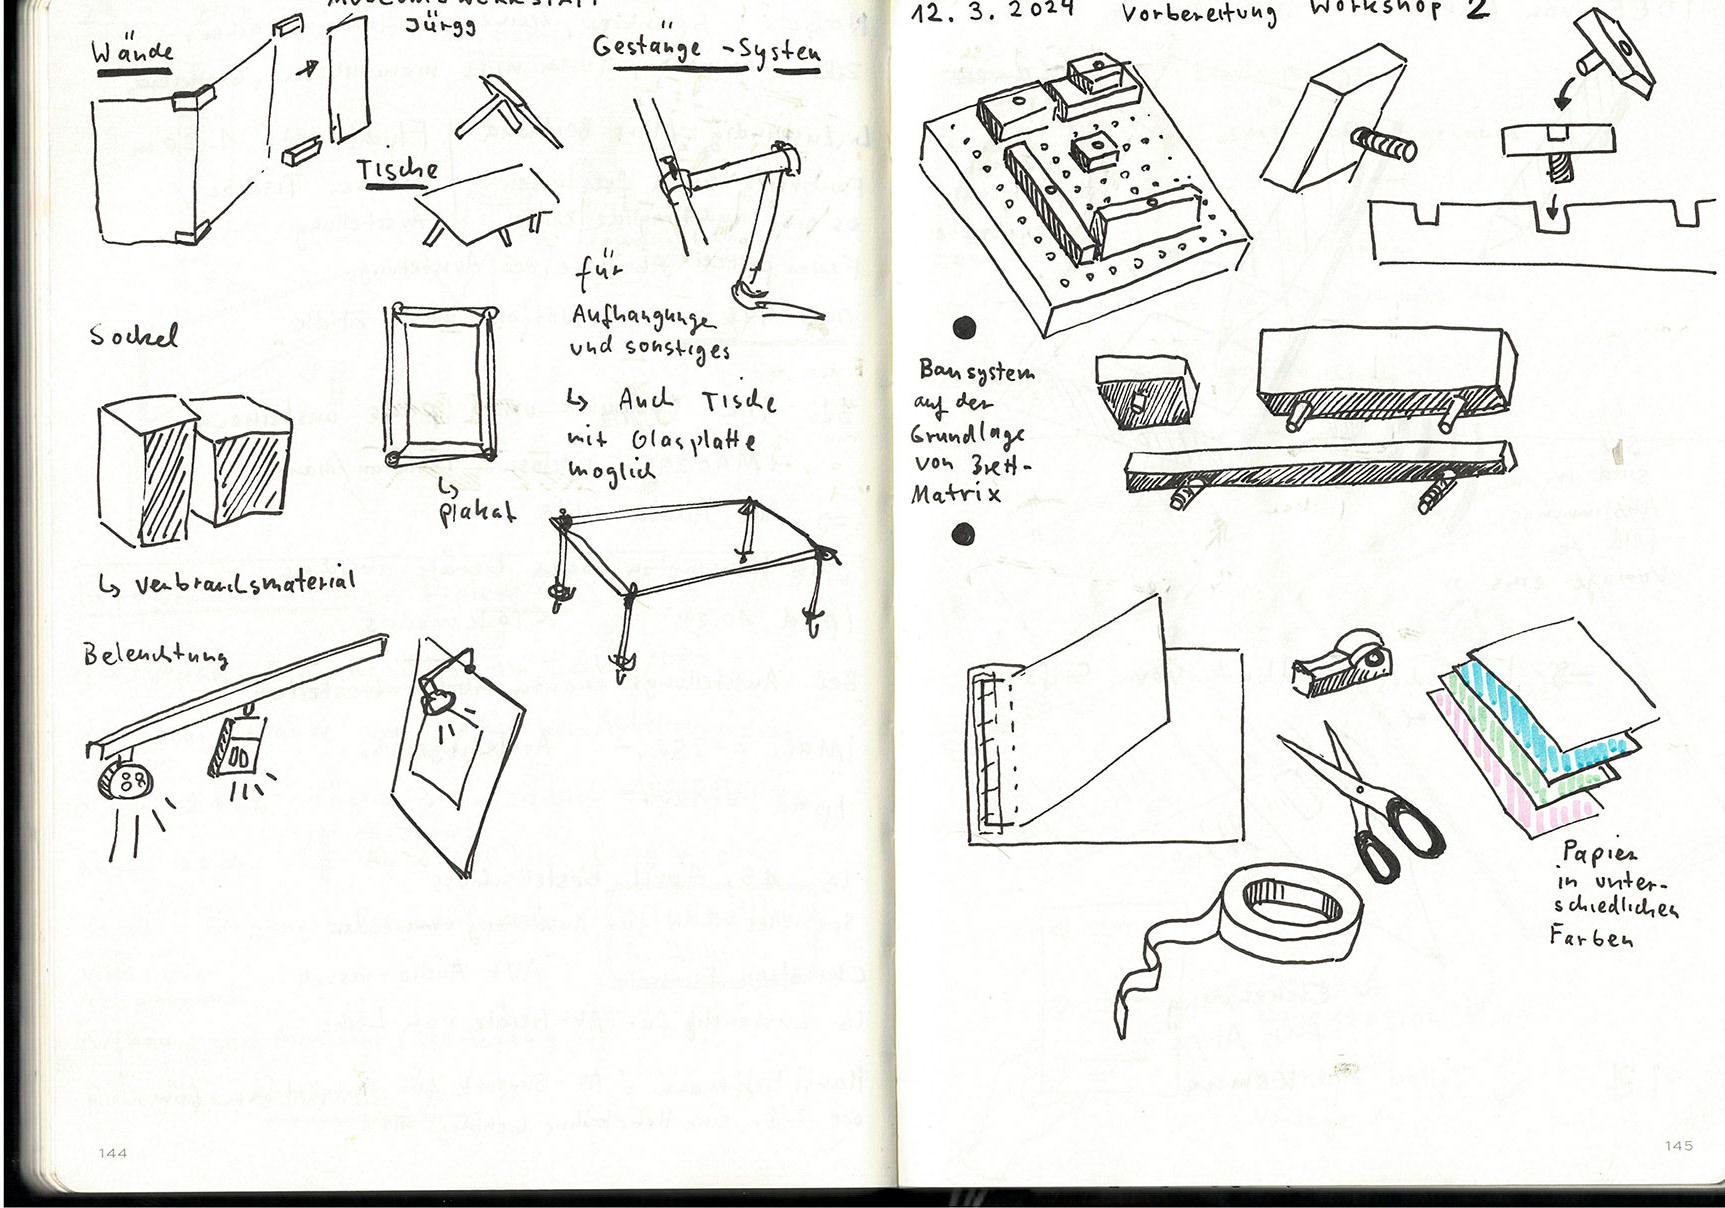 Jürgg
Wände
Gestänge-System
Tische
für
Aufhängungen
und sonstiges
↳ Auch Tische
mit Glasplatte
möglich
Sockel
↳ plakat
↳ verbrauchsmaterial
Beleuchtung
144
12. 3. 2024 Vorbereitung Workshop 2
Bausystem
auf der
Grundlage
von Brett-
Matrix
Papier
in unter-
schiedlichen
Farben
145